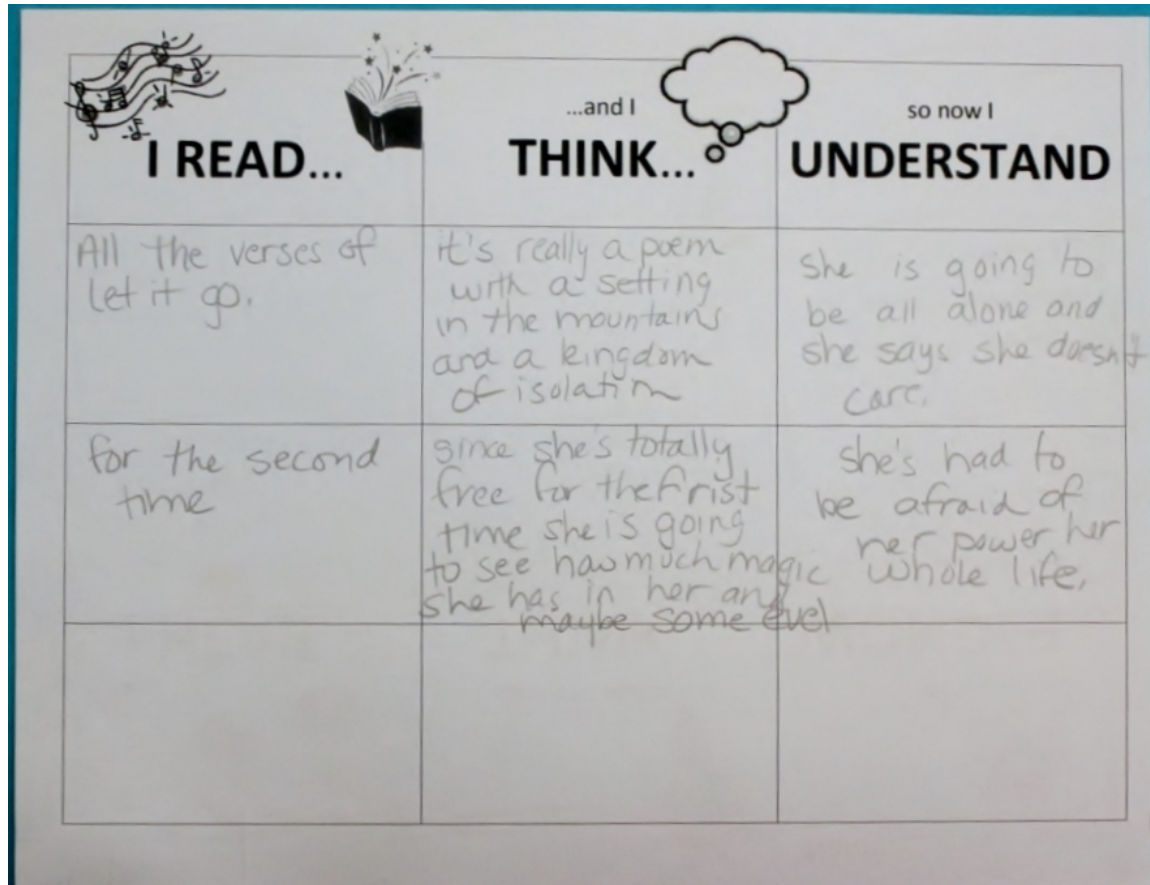 I READ...
...and I
THINK...
so now I
UNDERSTAND
All the verses of
let it go.
it's really a poem
with a setting
in the mountains
and a kingdom
of isolation
she is going to
be all alone and
she says she doesn't
care.
for the second
time
since she's totally
free for the frist
time she is going
to see how much magic
she has in her and
maybe some evel
she's had to
be afraid of
her power her
whole life.